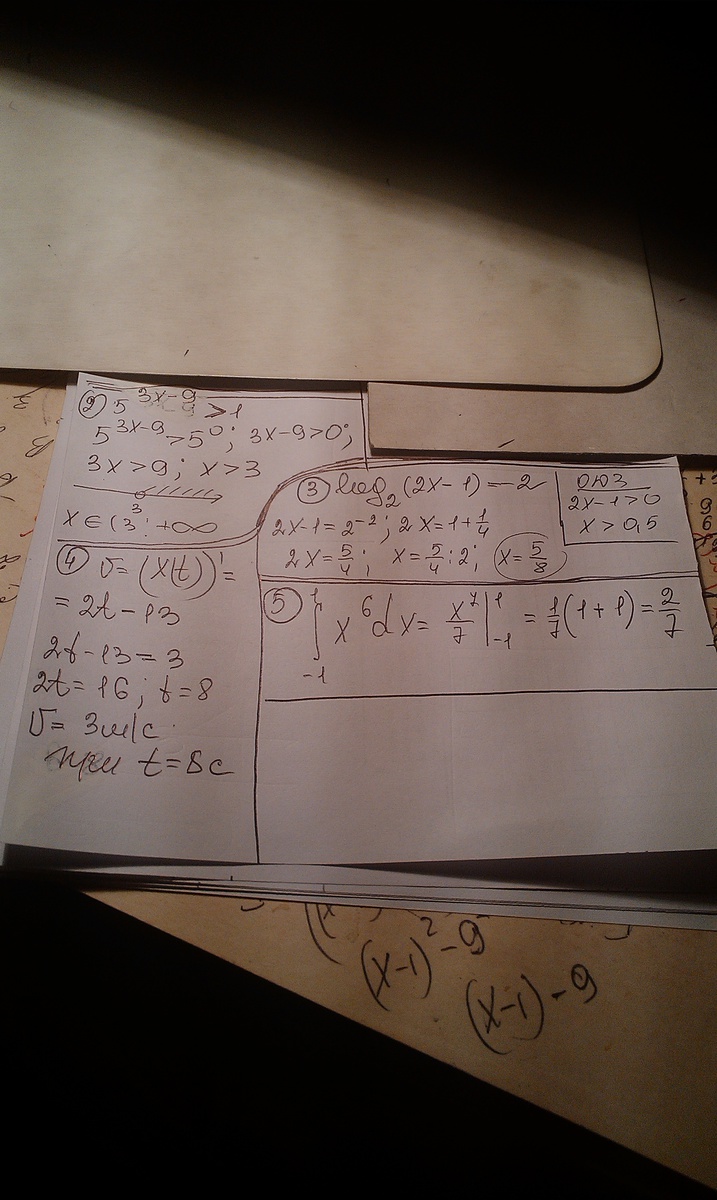 ② 5^(3x-9) > 1
5^(3x-9) > 5^0; 3x-9>0;
3x>9; x>3
3
x∈(3; +∞
③ log₂(2x-1) = -2
ОДЗ
2x-1>0
x > 0,5
2x-1=2^(-2); 2x=1+1/4
2x=5/4; x=5/4:2; x=5/8
④ v=(x(t))'=
= 2t-13
2t-13=3
2t=16; t=8
v= 3м/с
при t=8c
⑤ ∫_{-1}^{1} x^6 dx= x^7/7 |_{-1}^{1} = 1/7(1+1)=2/7
(x-1)²-9
(x-1)-9